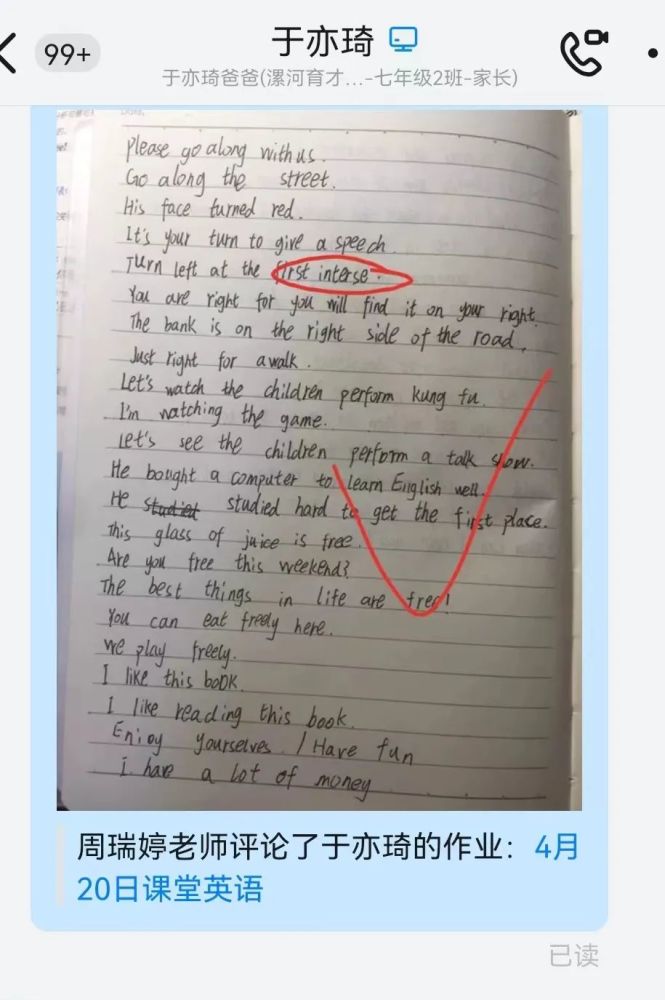 99+
于亦琦
于亦琦爸爸(漯河育才...-七年级2班-家长)
Please go along with us.
Go along the street.
His face turned red.
It's your turn to give a speech
Turn left at the first interse.
You are right for you will find it on your right.
The bank is on the right side of the road.
Just right for a walk.
Let's watch the children perform kung fu.
I'm watching the game.
Let's see the children perform a talk show.
He bought a computer to learn English well.
He studied studied hard to get the first place.
This glass of juice is free.
Are you free this weekend?
The best things in life are free!
You can eat freely here.
We play freely.
I like this book.
I like reading this book.
Enjoy yourselves / Have fun
I have a lot of money
周瑞婷老师评论了于亦琦的作业：4月
20日课堂英语
已读